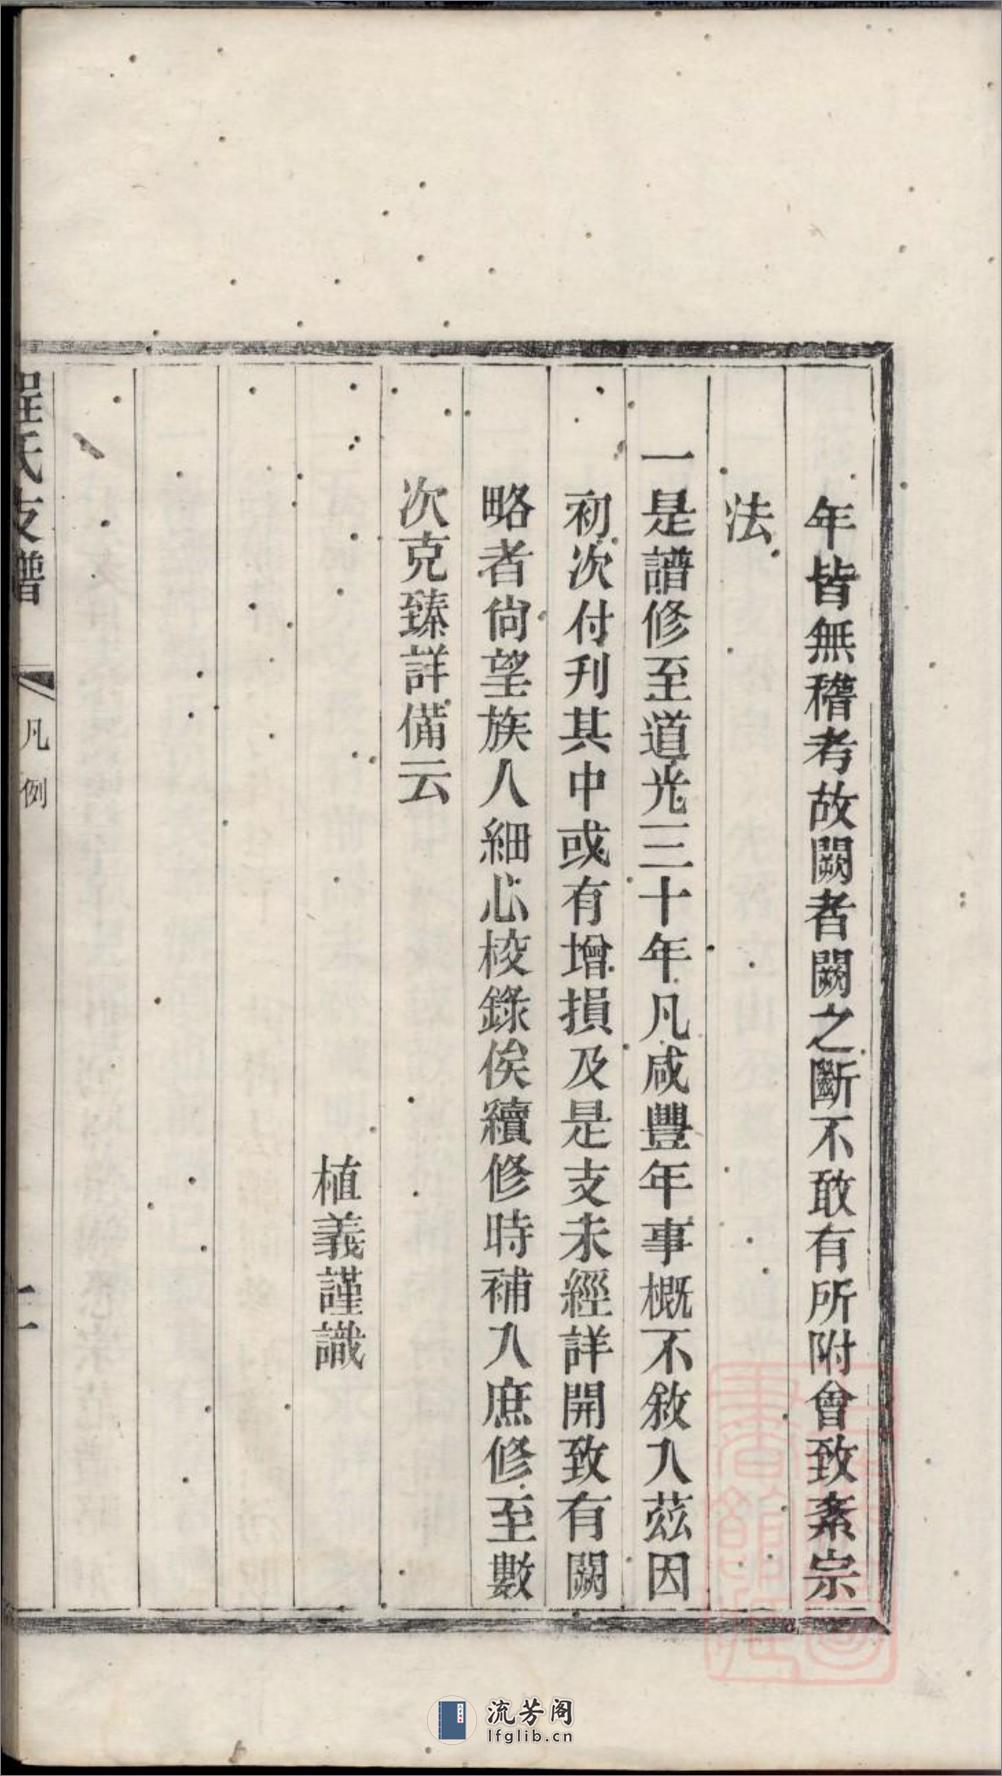 年皆無稽考故闕者闕之斷不敢有所附會致紊宗
法
一是譜修至道光三十年凡咸豐年事槪不敘入茲因
初次付刊其中或有增損及是支未經詳開致有闕
略者尙望族人細心校錄俟續修時補入庶修至數
次克臻詳備云
植義謹識
程氏支譜
凡例
流芳阁
lfglib.cn